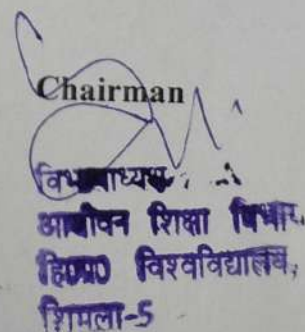 Chairman
विभागाध्यक्ष
आजीवन शिक्षा विभाग,
हि0प्र0 विश्वविद्यालय,
शिमला-5